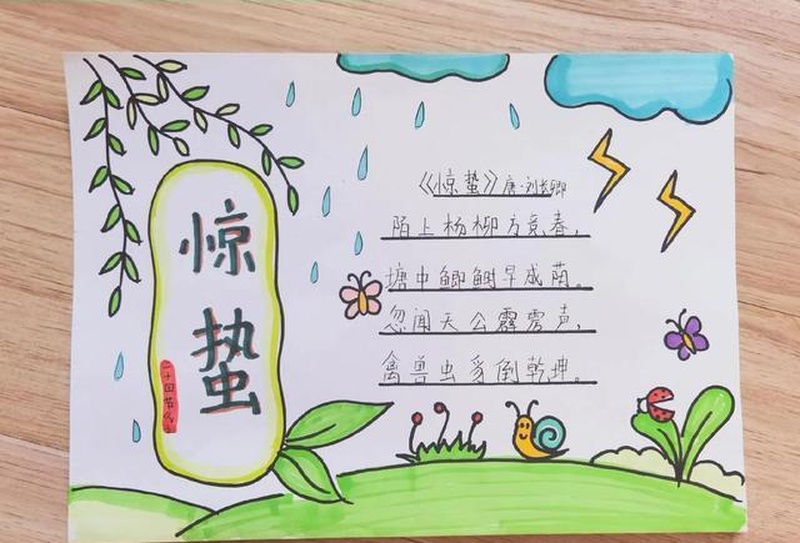 惊
蛰
二十四节气
《惊蛰》唐·刘长卿
陌上杨柳方竟春,
塘中鲫鲥早成荫。
忽闻天公霹雳声,
禽兽虫豸倒乾坤。